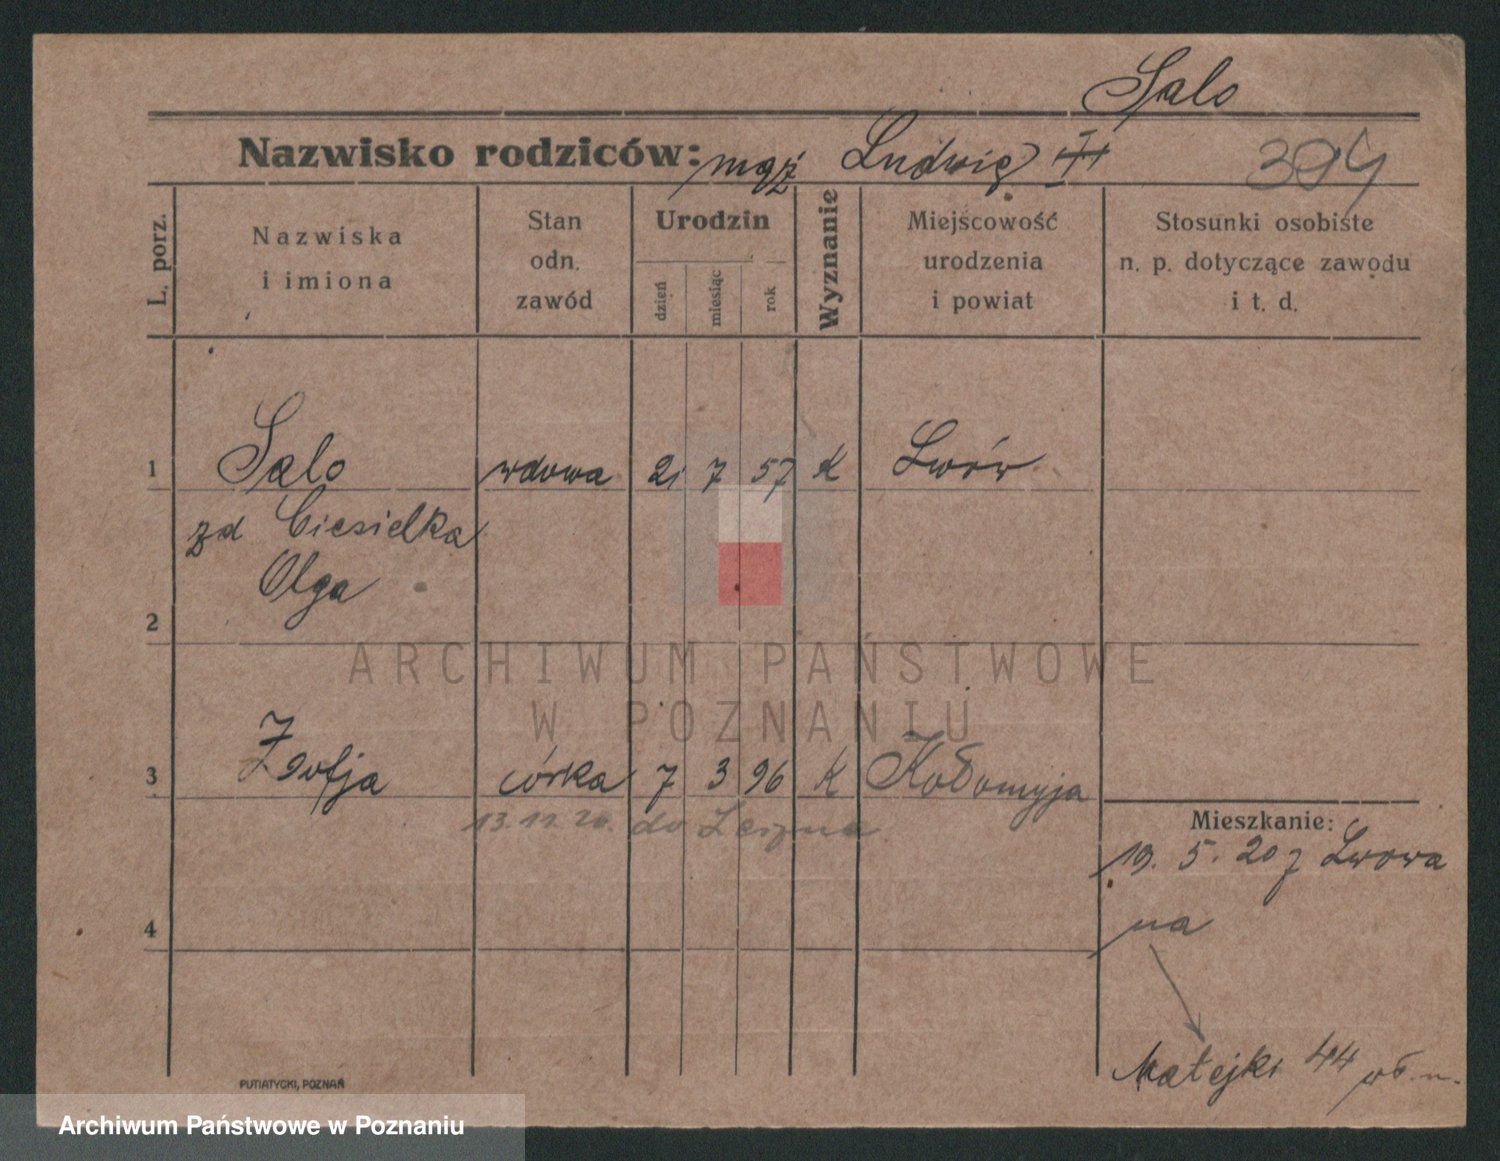 Salo
Nazwisko rodziców: mąż Ludwig
394
L. porz.
Nazwiska
i imiona
Stan
odn.
zawód
Urodzin
dzień
miesiąc
rok
Wyznanie
Miejscowość
urodzenia
i powiat
Stosunki osobiste
n. p. dotyczące zawodu
i t. d.
1 Salo wdowa 21 7 57 K Lwów
zd Ciesielka
Olga
2
ARCHIWUM PAŃSTWOWE
W POZNANIU
3 Zofja córka 7 3 96 K Kołomyja
13.11.20. do
Mieszkanie:
19. 5. 20 z Lwowa
na
4
Matejki 44
PUTIATYCKI, POZNAŃ
Archiwum Państwowe w Poznaniu